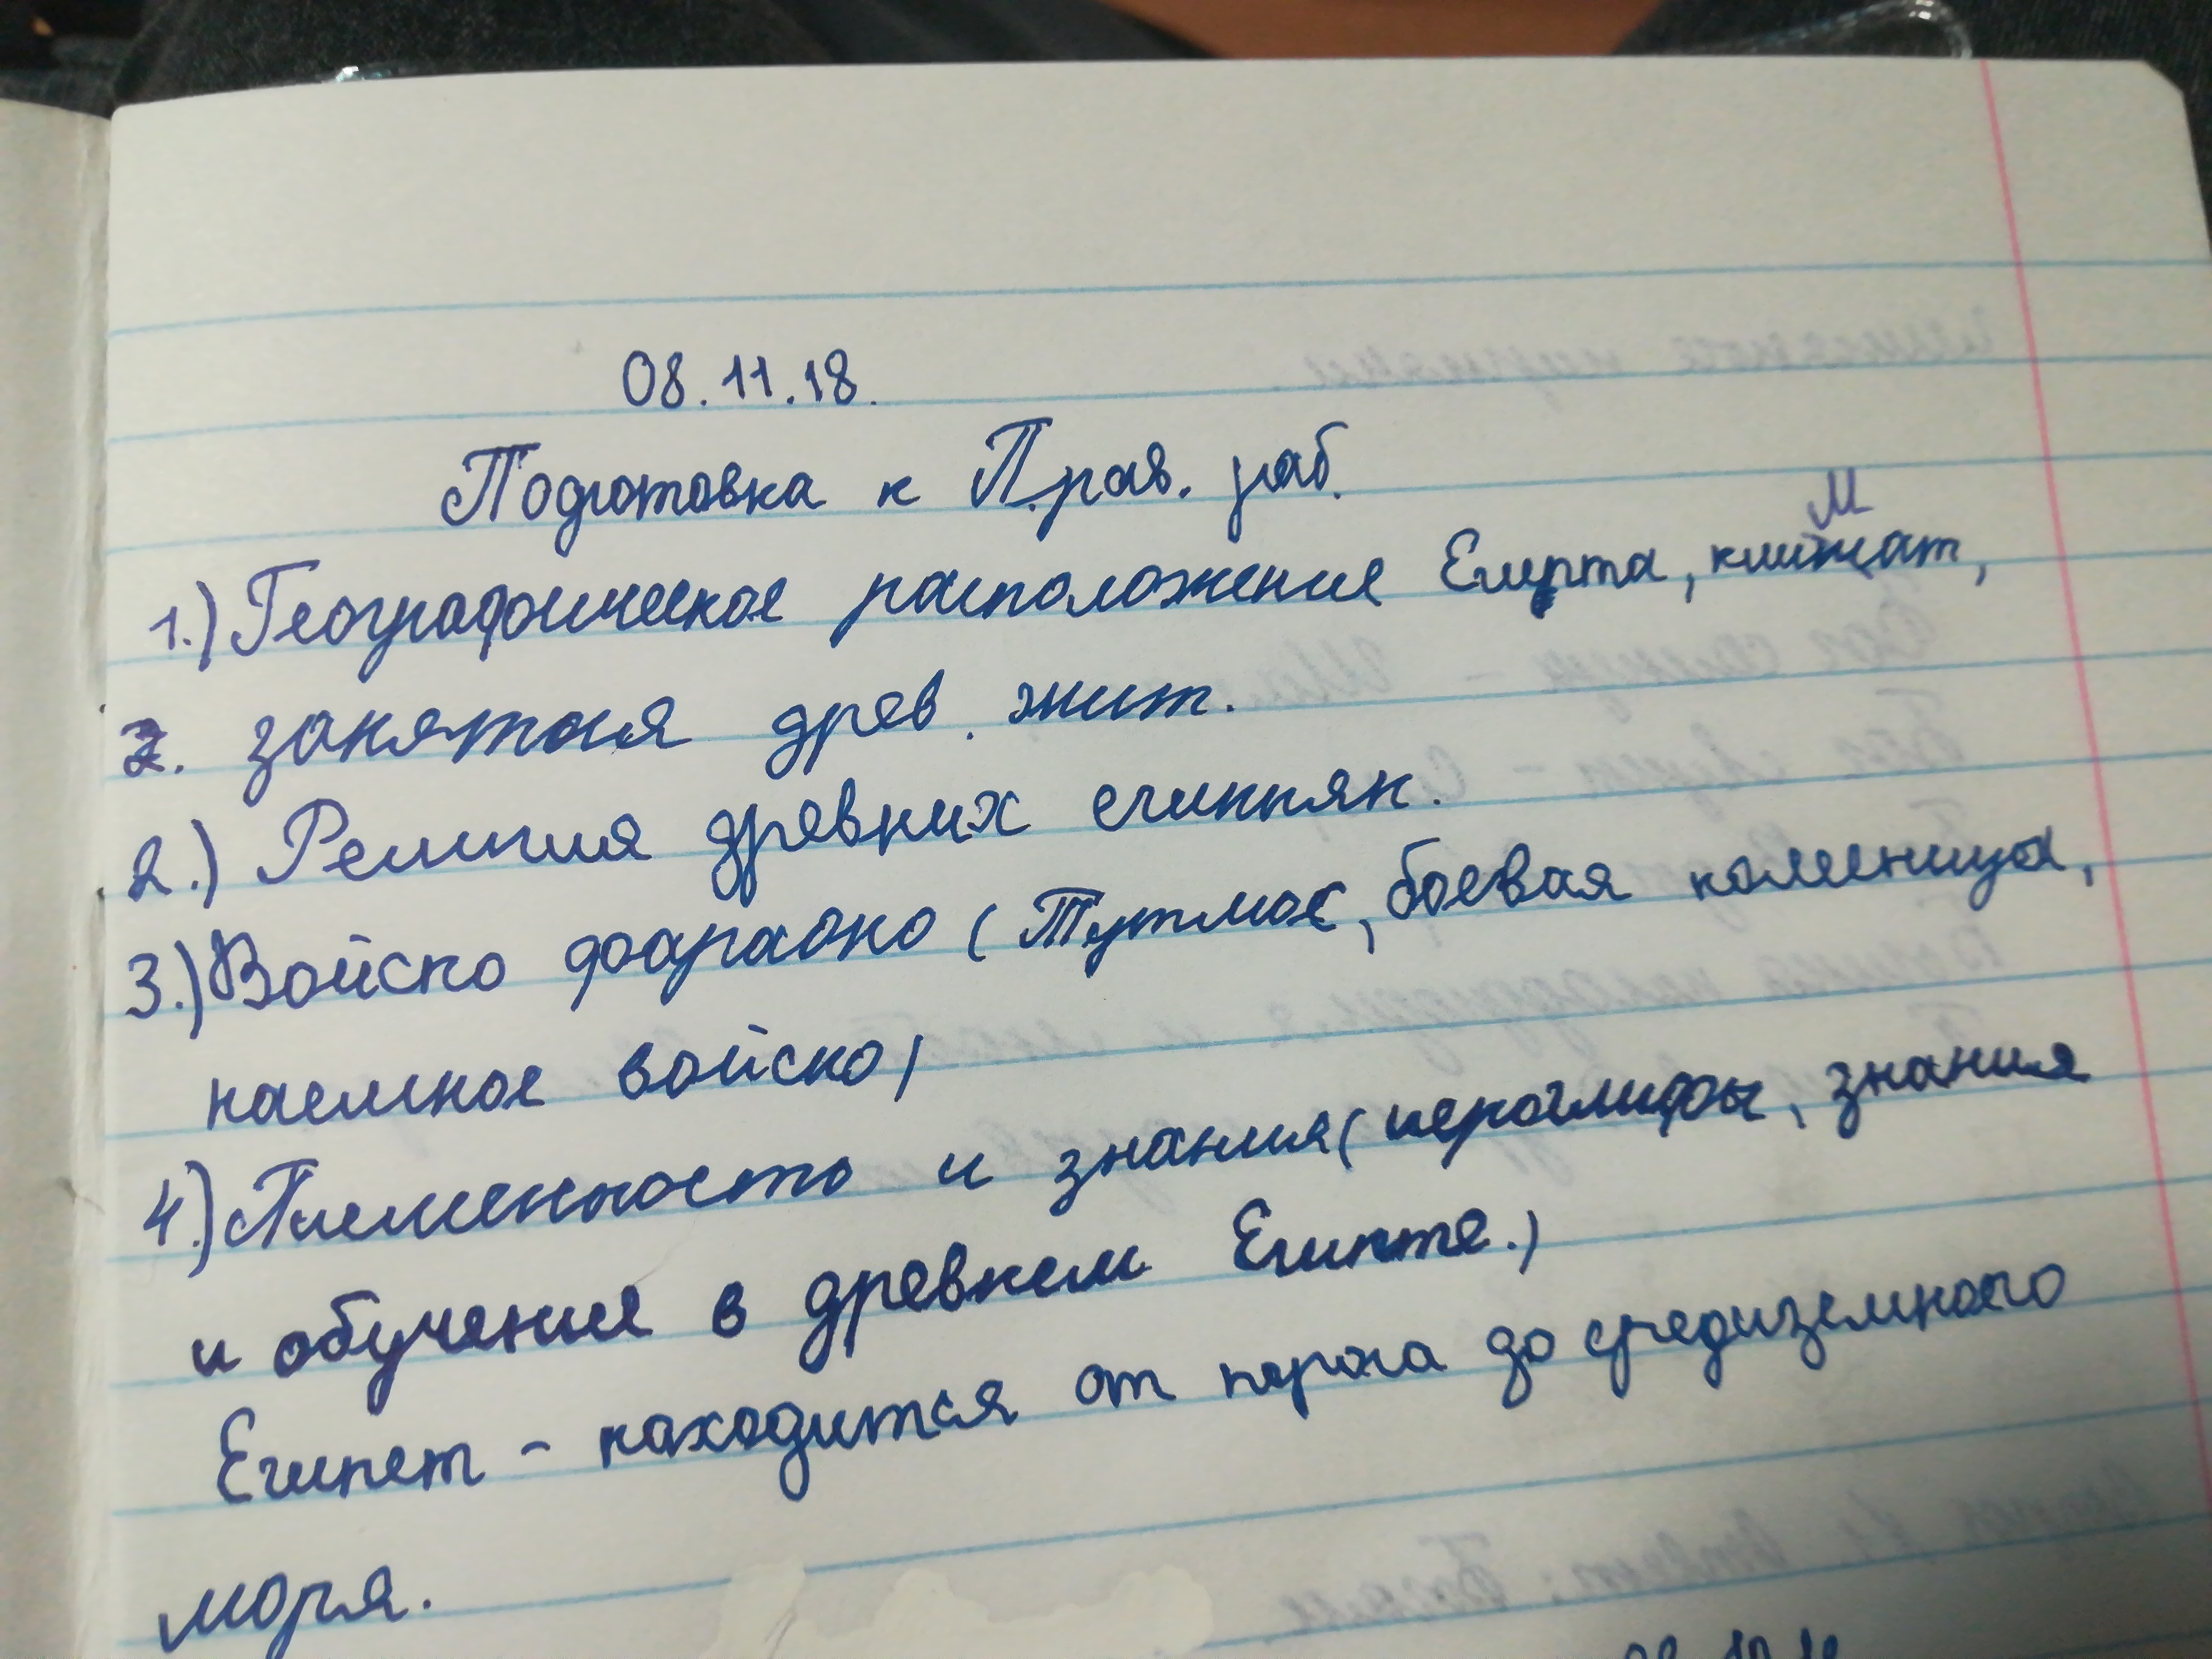 08.11.18.
Подготовка к Прав. раб.
1.) Географическое расположение Египта, климат,
2. занятия древ. жит.
2.) Религия древних египтян.
3.) Войско фараона (Тутмос, боевая колесница,
наемное войско)
4.) Писменность и знания (иероглифы, знания
и обучение в древнем Египте.)
Египет - находится от порога до средиземного
моря.